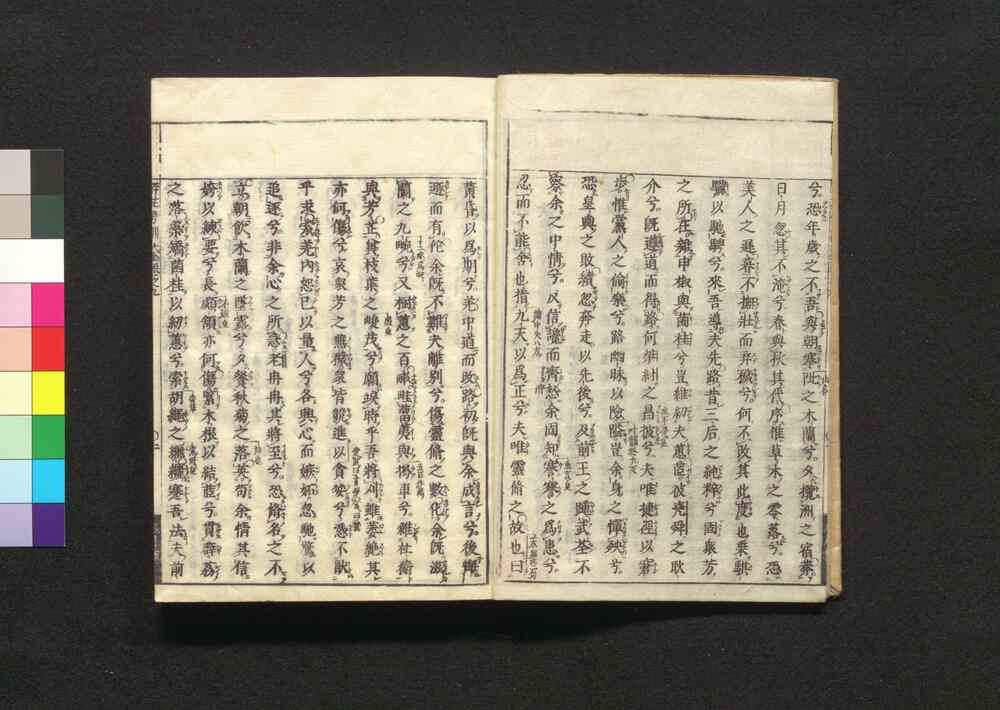 兮恐年歲之不吾與朝搴阰之木蘭兮夕攬洲之宿莽
日月忽其不淹兮春與秋其代序惟草木之零落兮恐
美人之遲暮不撫壯而弃穢兮何不改其此度也乘騏
驥以馳騁兮來吾導夫先路昔三后之純粹兮固衆芳
之所在雜申椒與菌桂兮豈維紉夫蕙茝彼堯舜之耿
介兮旣遵道而得路何桀紂之昌彼兮夫唯捷徑以窘
步惟黨人之偷樂兮路幽昧以險隘豈余身之憚殃兮
恐皇輿之敗績忽奔走以先後兮及前王之踵武荃不
察余之中情兮反信讒而齊怒余固知謇謇之爲患兮
忍而不能舍也指九天以爲正兮夫唯靈脩之故也曰
黃昏以爲期兮羌中道而改路初旣與余成言兮後悔
遁而有佗余旣不難夫離別兮傷靈脩之數化余旣滋
蘭之九畹兮又樹蕙之百畮畦留夷與揭車兮雜杜衡
與芳芷冀枝葉之峻茂兮願竢時乎吾將刈雖萎絶其
亦何傷兮哀衆芳之蕪穢衆皆競進以貪婪兮憑不猒
乎求索羌內恕己以量人兮各興心而嫉妒忽馳騖以
追逐兮非余心之所急老冉冉其將至兮恐脩名之不
立朝飲木蘭之墜露兮夕餐秋菊之落英苟余情其信
姱以練要兮長顑頷亦何傷擥木根以結茝兮貫薜荔
之落蘂矯菌桂以紉蕙兮索胡繩之纚纚謇吾法夫前